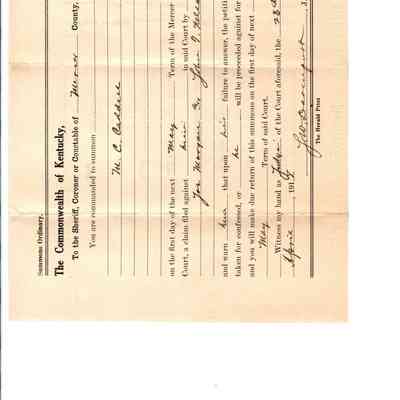 Summons Ordinary.
The Commonwealth of Kentucky,
To the Sheriff, Coroner or Constable of Mercer County,
You are commanded to summon
M. C.
on the first day of the next May Term of the Mercer
Court, a claim filed against him in said Court by
Joe Morgan & John
and warn him that upon his failure to answer, the petiti
taken for confessed, or he will be proceeded against for
and you will make due return of this summons on the first day of next
May Term of said Court.
Witness my hand as Judge of the Court aforesaid, the 23
April 191
The Herald Print